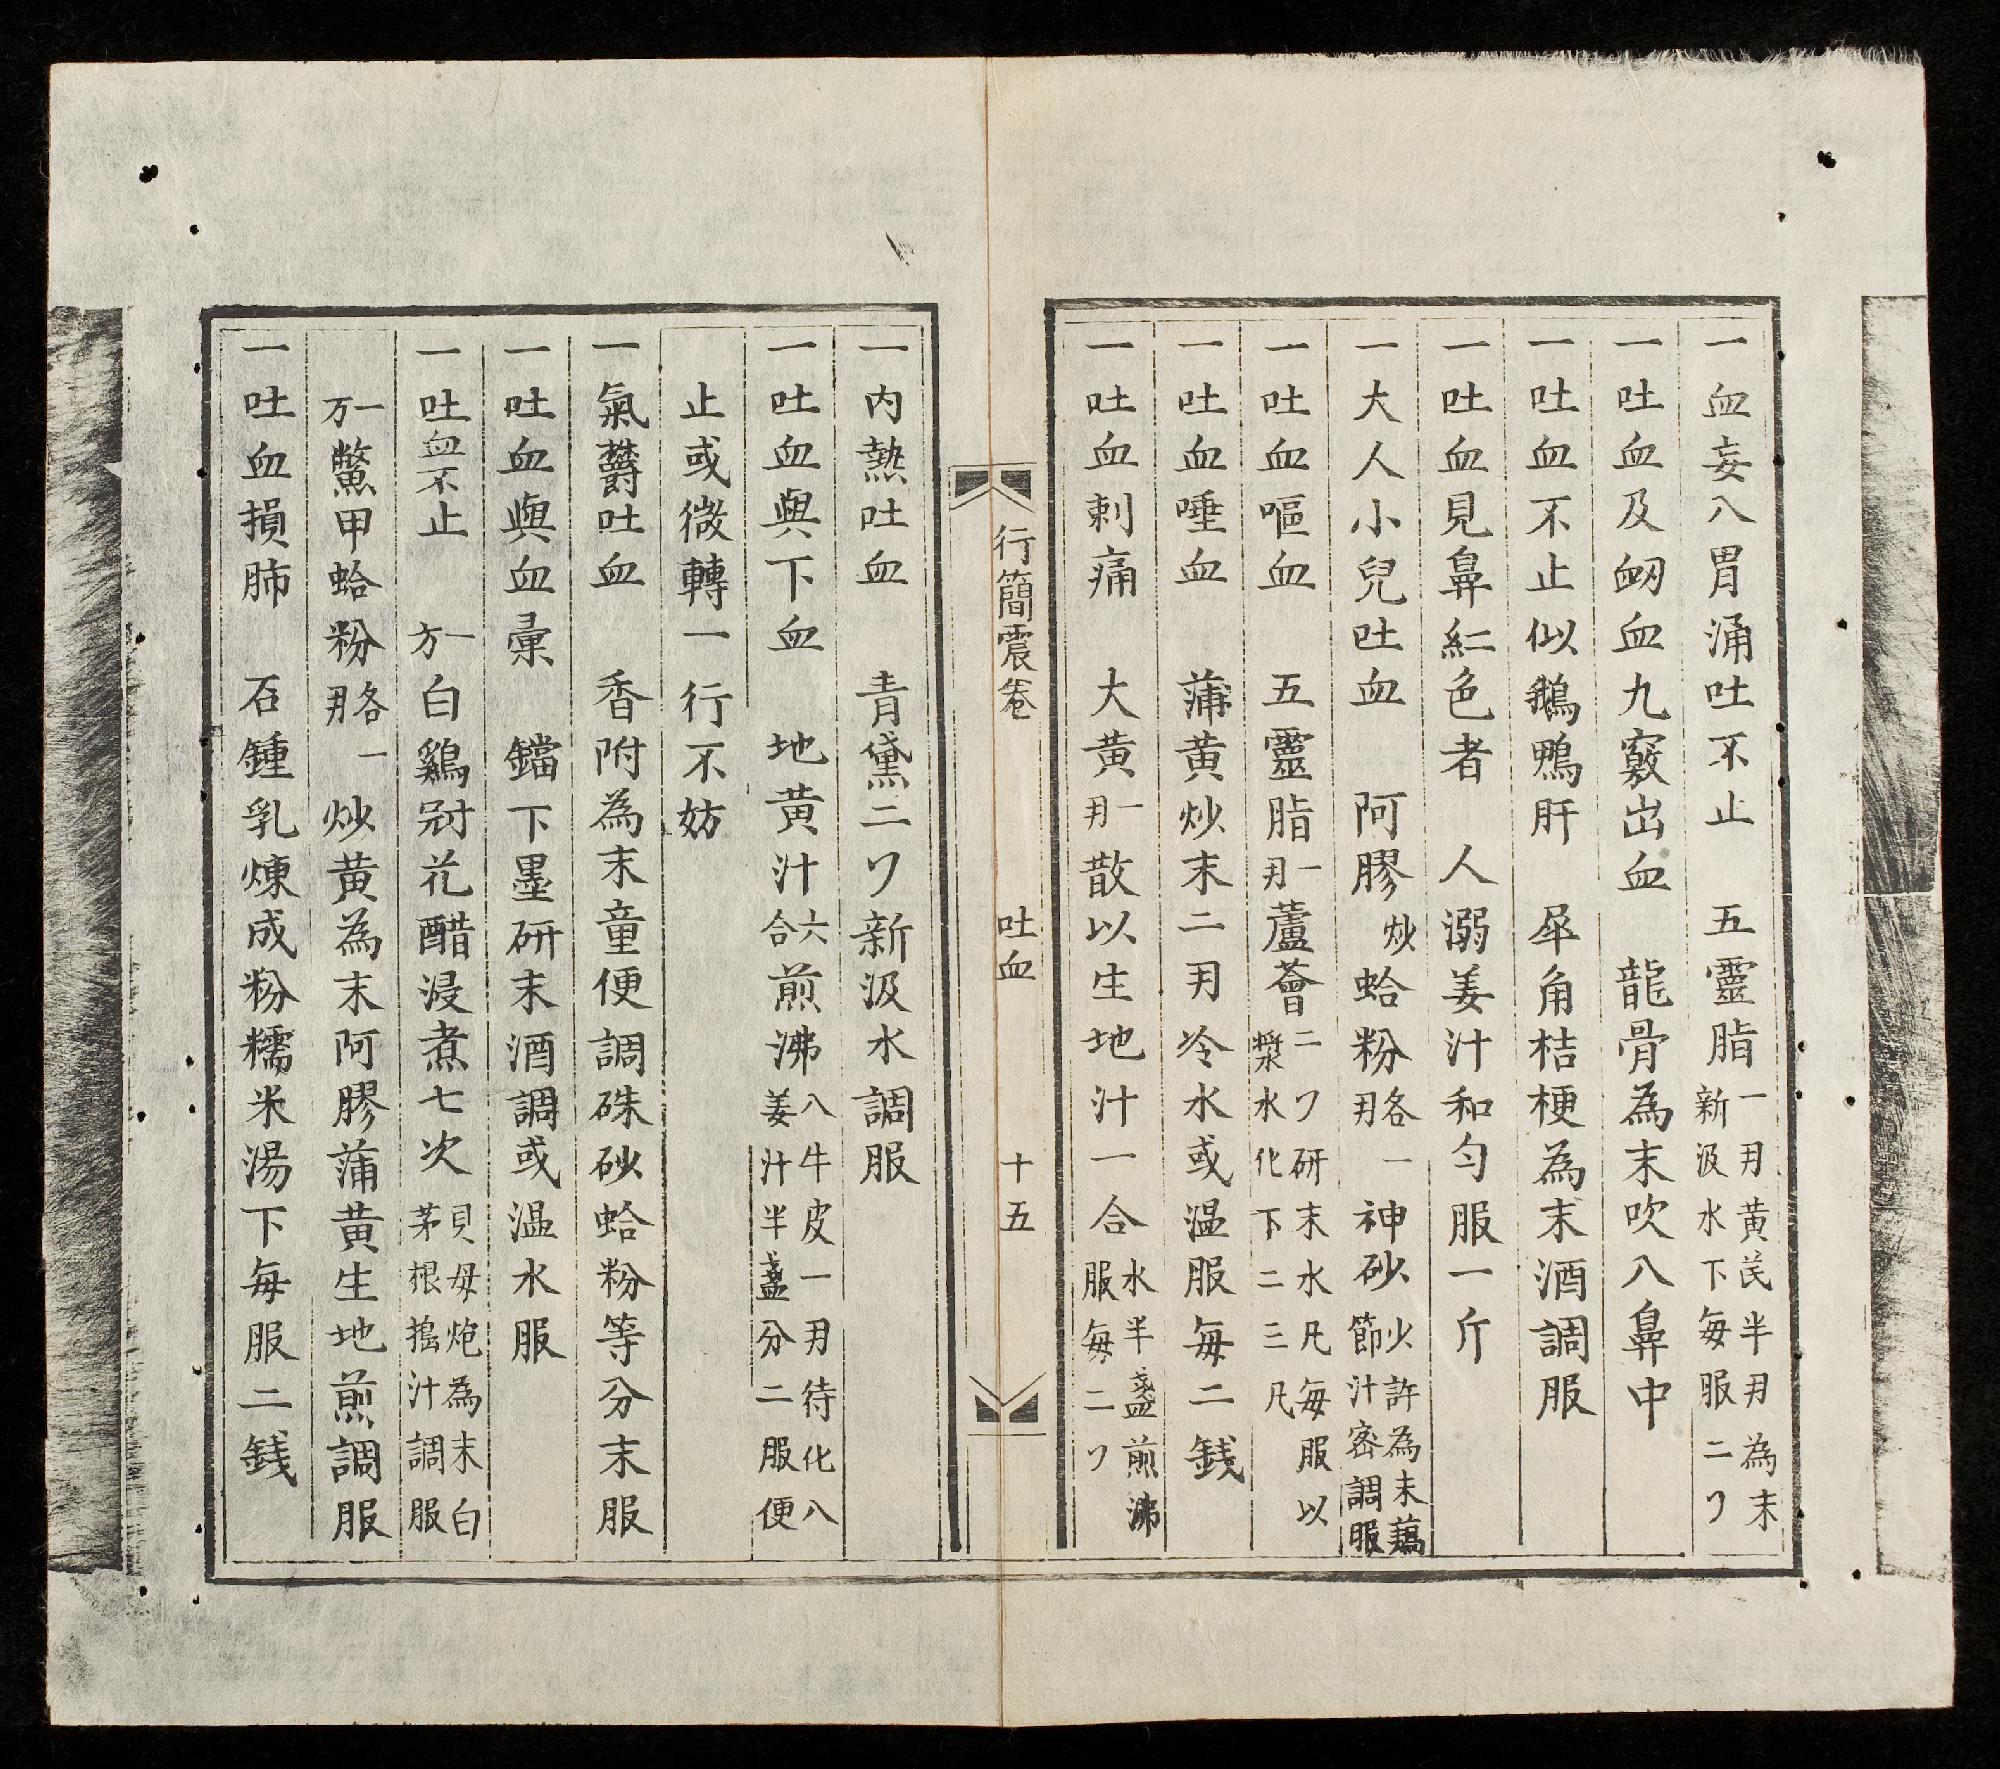 一血妄八胃涌吐不止　五靈脂一刄黃芪半刄為末新汲水下每服二㇆
一吐血及衂血九竅出血　龍骨為末吹八鼻中
一吐血不止似鵝鴨肝　犀角桔梗為末酒調服
一吐血見鼻紅色者　人溺姜汁和勻服一斤
一大人小兒吐血　阿膠炒蛤粉各一刄神砂少許為末藕節汁密調服
一吐血嘔血　五靈脂一刄蘆薈二㇆研末水凡每服以漿水化下二三凡
一吐血唾血　蒲黃炒末二刄冷水或溫服每二銭
一吐血刺痛　大黃一刄散以生地汁一合水半盞煎沸服每二㇆
行簡震卷　吐血　十五
一內熱吐血　青黛二㇆新汲水調服
一吐血與下血　地黃汁六合煎沸八牛皮一刄待化八姜汁半盞分二服便
止或微轉一行不妨
一氣欝吐血　香附為末童便調硃砂蛤粉等分末服
一吐血與血彙　鐺下墨研末酒調或溫水服
一吐血不止　一方白鷄冠花醋浸煮七次貝母炮為末白茅根搗汁調服
一方鱉甲蛤粉各一刄炒黃為末阿膠蒲黃生地煎調服
一吐血損肺　石鍾乳煉成粉糯米湯下每服二銭